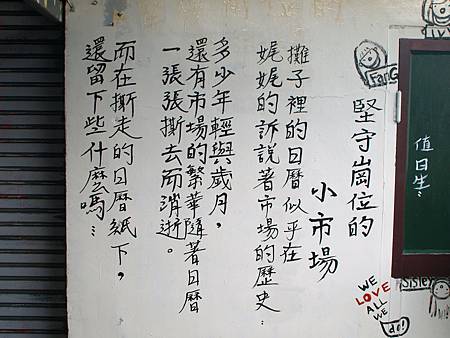 堅守崗位的
小市場
攤子裡的日曆似乎在
娓娓的訴說著市場的歷史…
多少年輕與歲月，
還有市場的繁華隨著日曆
一張張撕去而消逝。
而在撕走的日曆紙下，
還留下些什麼嗎…
值日生：
FanG
WE
LOVE
ALL
WE
do!
Sisley